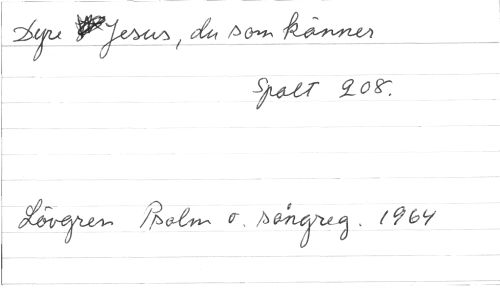 Dyre Jesus, du som känner
Spalt 208.
Lövgren Psalm o. sångreg. 1964